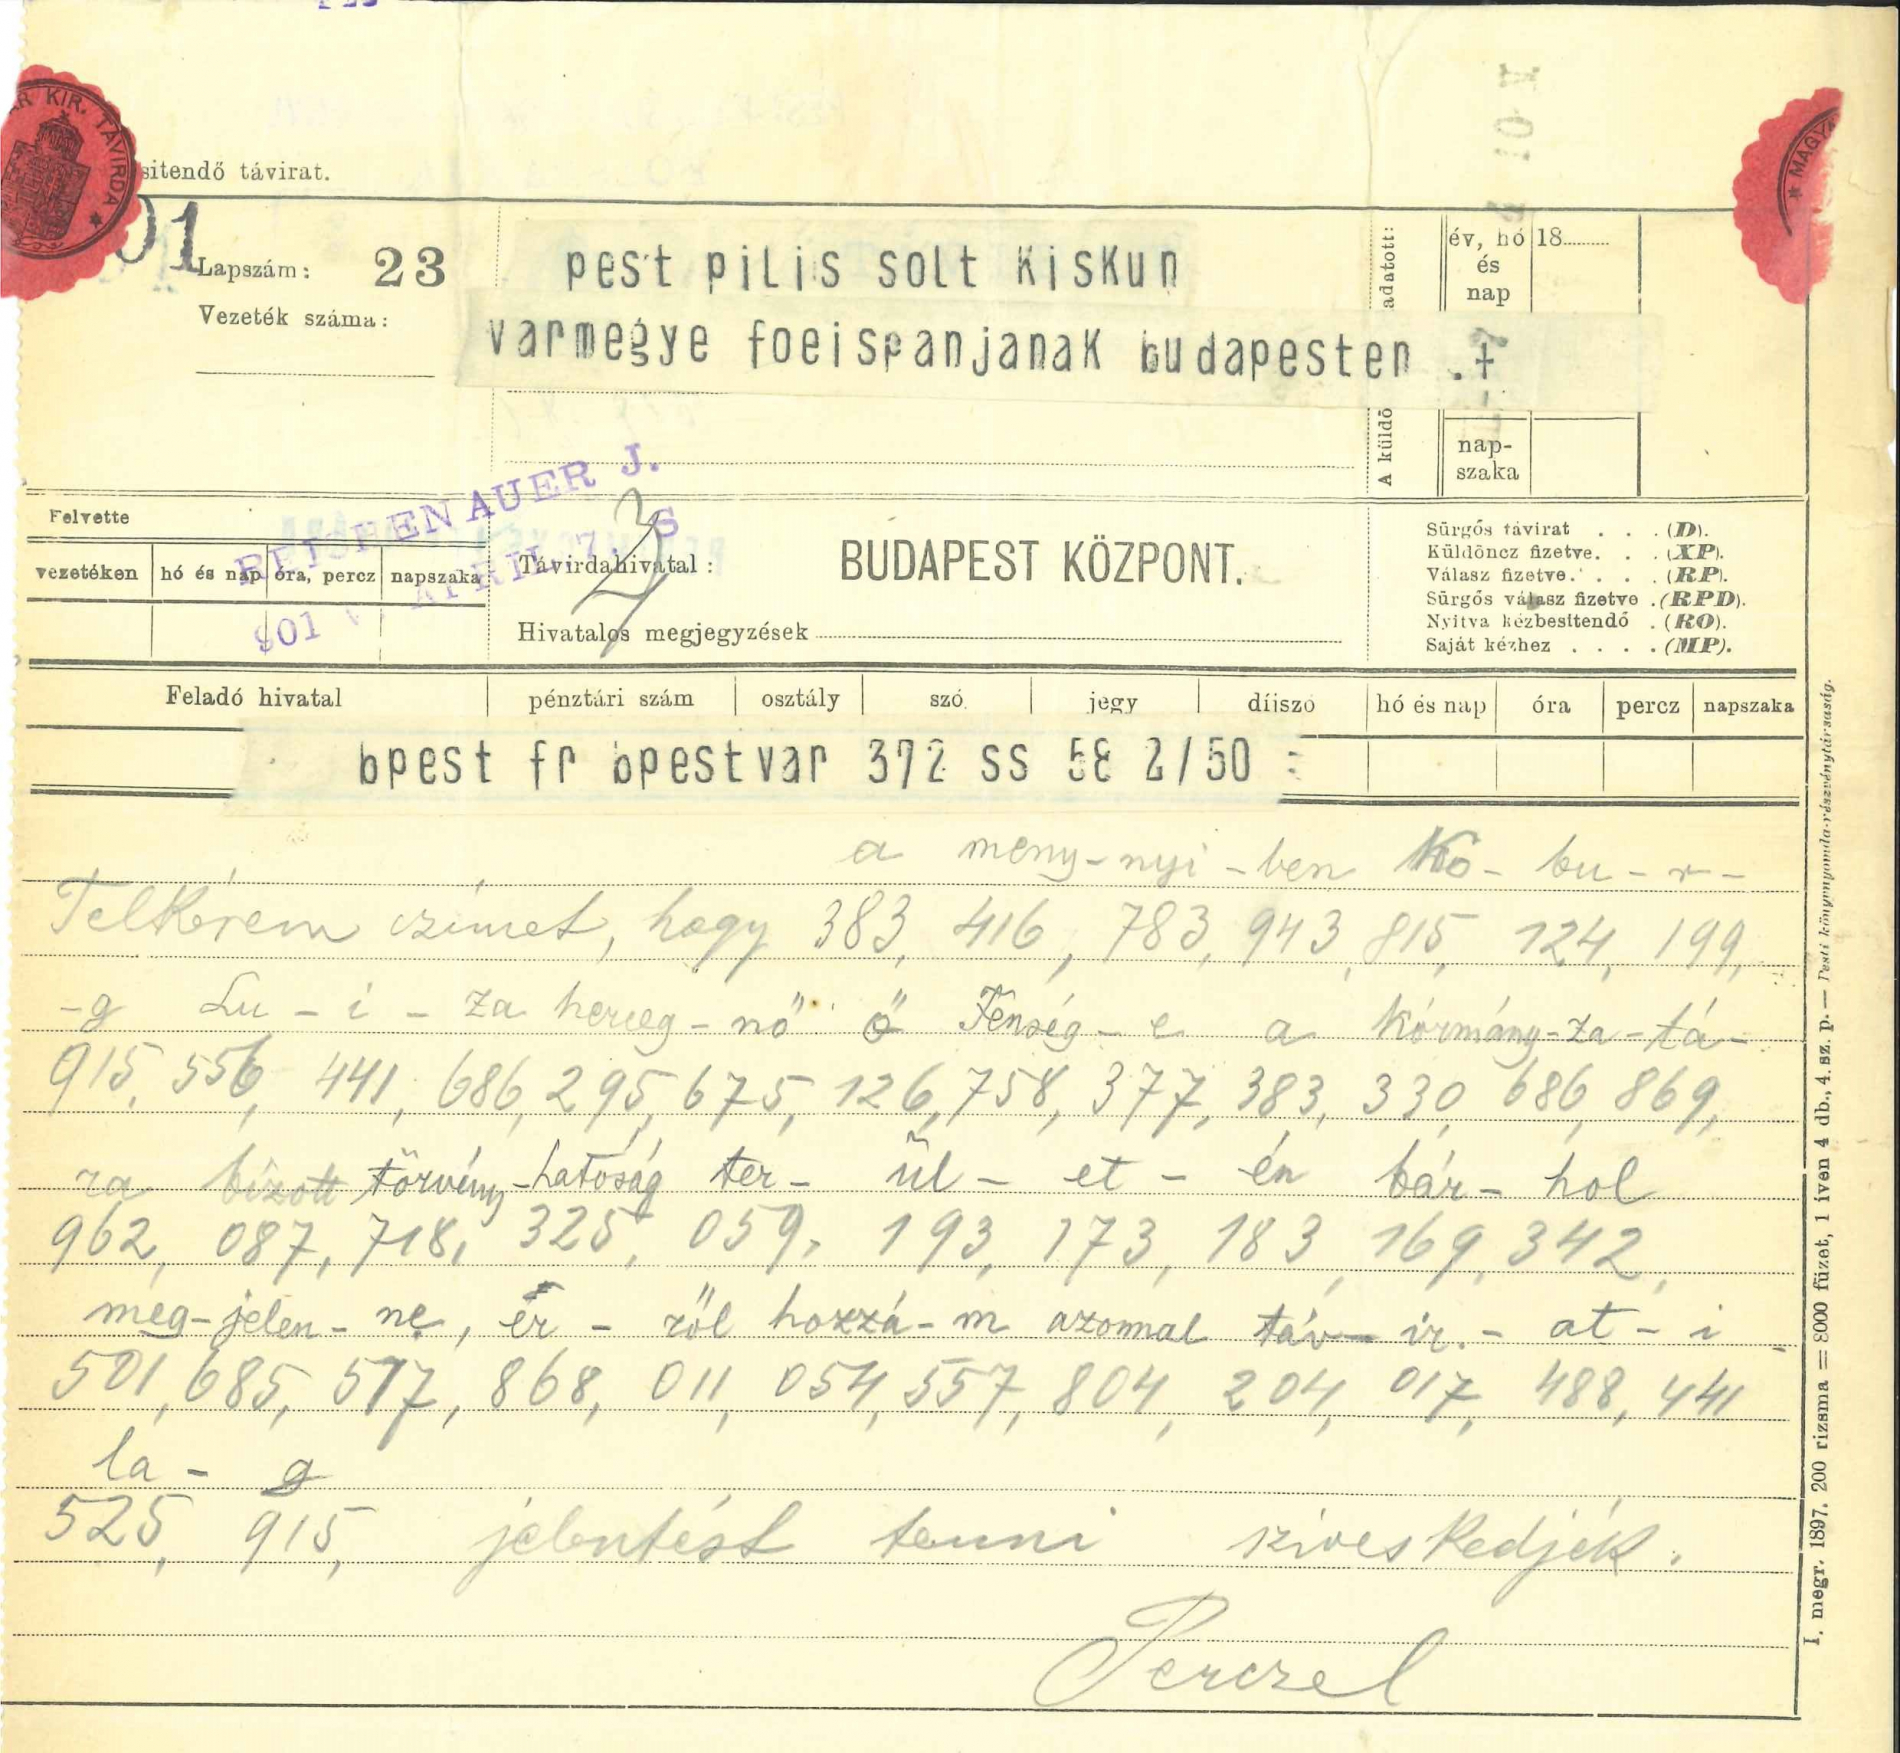 R KIR. TÁVIRDA *
* MAGYA
sitendő távirat.
01
Lapszám: 23
Vezeték száma:
pest pilis solt kiskun
varmegye foeispanjanak budapesten .+
adatott:
A küldő
év, hó és nap
18
nap-szaka
ENAUER J.
APRIL 7. S
901
Felvette
vezetéken hó és nap óra, percz napszaka
Távirdahivatal: BUDAPEST KÖZPONT.
Hivatalos megjegyzések
Sürgős távirat . . . (D).
Küldöncz fizetve. . . (XP).
Válasz fizetve. . . . (RP).
Sürgős válasz fizetve . (RPD).
Nyitva kézbesitendő . (RO).
Saját kézhez . . . . (MP).
Feladó hivatal pénztári szám osztály szó jegy díjszó hó és nap óra percz napszaka
bpest fr bpestvar 372 ss 58 2/50 =
a meny-nyi-ben Ko-bu-r-
Felkérem czímet, hogy 383, 416, 783, 943, 815, 124, 199,
-g Lu-i-za herceg-nő ő Fenség-e a kormány-za-tá-
915, 556, 441, 686, 295, 675, 126, 758, 377, 383, 330, 686, 869,
ra bízott törvény-hatóság ter-ül-et-én bár-hol
962, 087, 718, 325, 059, 193, 173, 183, 169, 342,
meg-jelen-ne, er-ről hozzá-m azonnal táv-ir-at-i
501, 685, 517, 868, 011, 054, 557, 804, 204, 017, 488, 441
la-g
525, 915, jelentést tenni szíveskedjék.
Perczel
I. megr. 1897. 200 rizsma = 8000 füzet, 1 iven 4 db., 4. sz. p. — Pesti könyvnyomda-részvénytársaság.